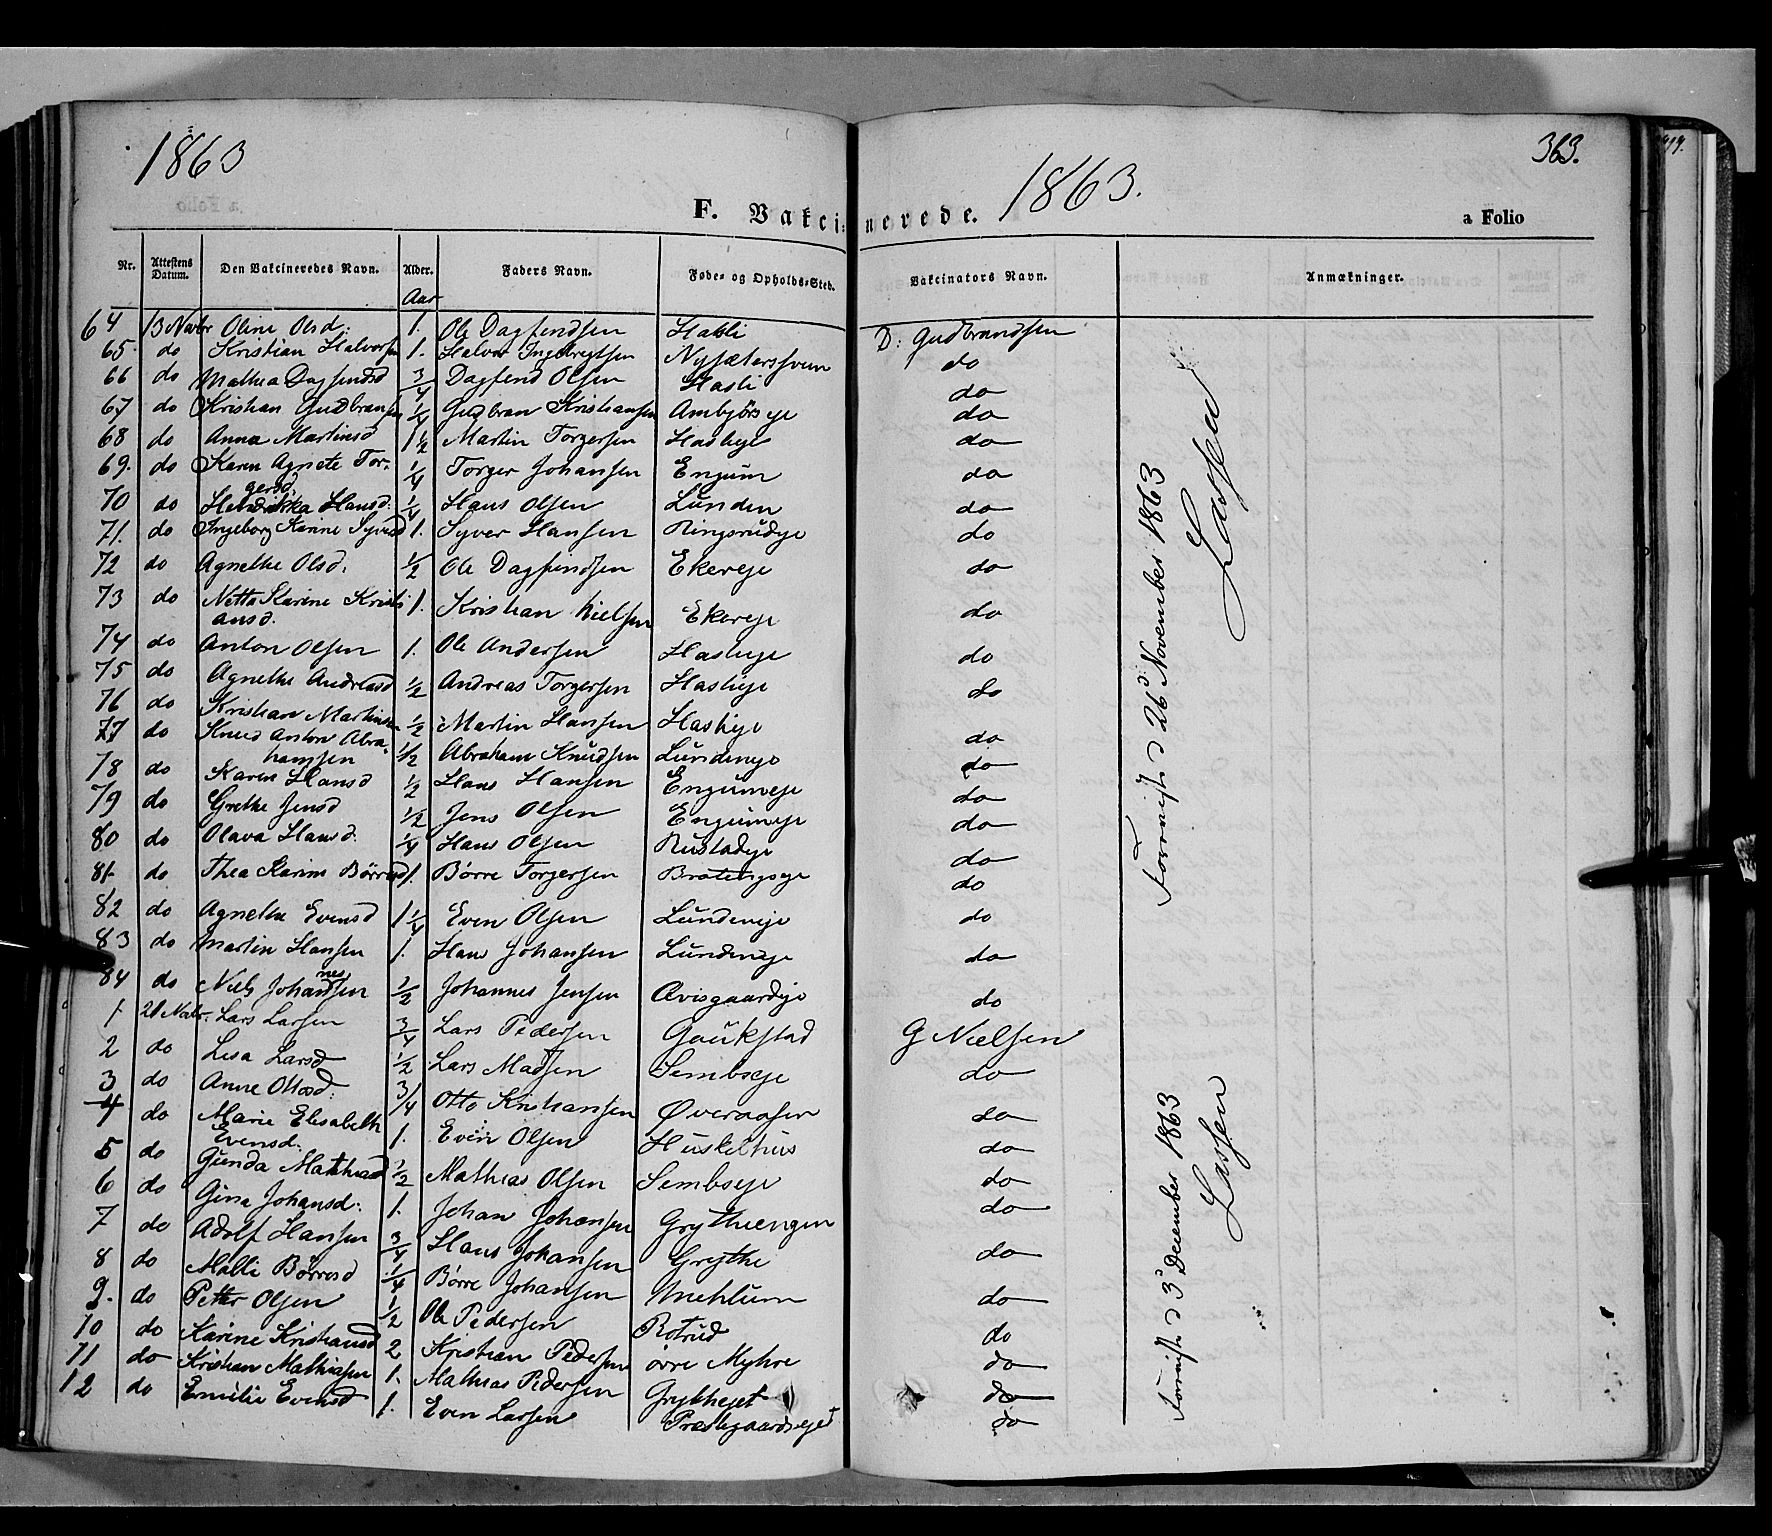 1863
F. Vakcinerede. 1863.
363.
a Folio
Nr. Attestens Datum. Den Vakcineredes Navn. Alder. Faders Navn. Føde- og Opholds-Sted. Vakcinators Navn. Anmækninger.
Aar
64 13 Novbr Oline Olsd: 1. Ole Dagfindsen Hasli D: Gudbrandsen
65. do Kristian Halvorsen 1. Halvor Ingebregtsen do
66 do Mathea Dagfindsd 3/4 Dagfend Olsen Hasli do
67 do Kristian Gudbransen 1/4 Gudbran Kristiansen Ambjörseje do
68 do Anna Martinsd 1 1/2 Martin Torgersen Haslieje do
69. do Karen Agnete Tor- 1/4 Torger Johansen Engum do
gersd
70 do Hendrikka Hansd: 1/4 Hans Olsen Lunden do
71. do Ingeborg Karine Syversd 1. Syver Hansen Ringsrudeje do
72 do Agnethe Olsd. 1/2 Ole Dagfindsen Ekereje do
73 do Netta Karine Kristi 1. Kristian Nielsen Ekereje do
ansd.
74 do Anton Olsen 1. Ole Andersen Haslieje do
75 do Agnethe Andreasd 1/2 Andreas Torgersen Haslieje do
76 do Kristian Martinsen 1/2 Martin Hansen Haslieje do
77 do Knud Anton Abra- 1/2 Abraham Knudsen Lundeneje do
hamsen
78 do Karen Hansd 1/2 Hans Hansen Engumeje do
79 do Grethe Jensd 1/2 Jens Olsen Engumeje do
80 do Olava Hansd. 1/4 Hans Olsen Rustadeje do
81 do Thea Karine Börresd 1. Börre Torgersen Bratengseje do
82 do Agnethe Evensd 1 1/4 Even Olsen Lundeneje do
83 do Martin Hansen 1. Hans Johansen Lundeneje do
84 do Niels Johannessen 1/2 Johannes Jensen Evisgaardeje do
1. 21 Novbr. Lars Larsen 3/4 Lars Pedersen Gaukstad G Nielsen
2 do Lisa Larsd 1/2 Lars Madsen Sembseje do
3 do Anne Ottosd. 3/4 Otto Kristiansen Överaasen do
4 do Marie Elisabeth 1. Even Olsen Huskelhus do
Evensd.
5 do Gunda Mathiasd 1/2 Mathias Olsen Sembseje do
6 do Gina Johansd. 1. Johan Johansen Grytheengen do
7 do Adolf Hansen 3/4 Hans Johansen Grythe do
8 do Malli Börresd 1/4 Börre Johansen Mehlum do
9. do Petter Olsen 1/2 Ole Pedersen Rotrud do
10 do Karine Kristiansd 2 Kristian Pedersen övre Myhre do
11 do Kristian Mathiasen 1. Mathias Pedersen Grytheejet do
12 do Emilie Evensd 1. Even Larsen Præstegaardsejet do
26d November 1863
Lassen
3d December 1863
Lassen